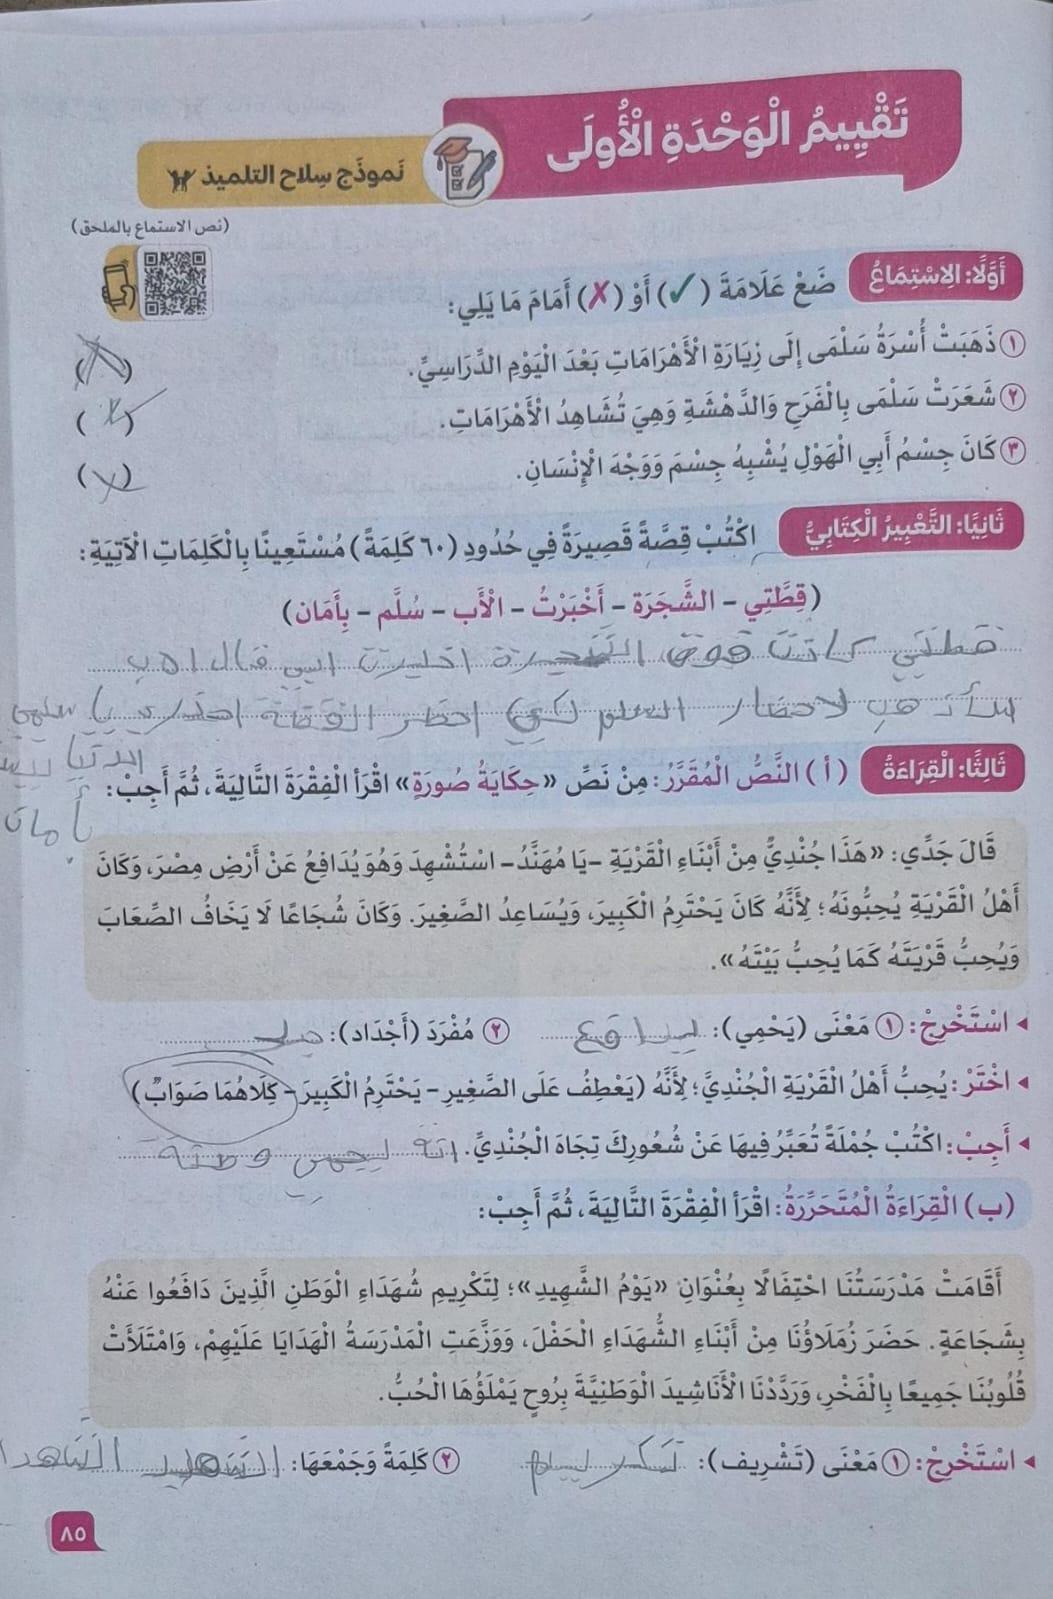 تَقْيِيمُ الْوَحْدَةِ الْأُولَى
نَموذَج سِلاح التلميذ ٢
(نص الاستماع بالملحق)
أَوَّلًا: الِاسْتِمَاعُ ضَعْ عَلَامَةَ (✓) أَوْ (✗) أَمَامَ مَا يَلِي:
١ ذَهَبَتْ أُسْرَةُ سَلْمَى إِلَى زِيَارَةِ الْأَهْرَامَاتِ بَعْدَ الْيَوْمِ الدِّرَاسِيِّ. ( )
٢ شَعَرَتْ سَلْمَى بِالْفَرَحِ وَالدَّهْشَةِ وَهِيَ تُشَاهِدُ الْأَهْرَامَاتِ. ( )
٣ كَانَ جِسْمُ أَبِي الْهَوْلِ يُشْبِهُ جِسْمَ وَوَجْهَ الْإِنْسَانِ. (✗)
ثَانِيًا: التَّعْبِيرُ الْكِتَابِيُّ اكْتُبْ قِصَّةً قَصِيرَةً فِي حُدُودِ (٦٠ كَلِمَةً) مُسْتَعِينًا بِالْكَلِمَاتِ الْآتِيَةِ:
(قِطَّتِي - الشَّجَرَة - أَخْبَرْتُ - الْأَب - سُلَّم - بِأَمَان)
قطتي كانت فوق الشجرة اخبرت ابي قال
لاحضار السلم لكي احضر القطة
بأمان
ثَالِثًا: الْقِرَاءَةُ (أ) النَّصُّ الْمُقَرَّرُ: مِنْ نَصِّ «حِكَايَةُ صُورَةٍ» اقْرَأِ الْفِقْرَةَ التَّالِيَةَ، ثُمَّ أَجِبْ:
قَالَ جَدِّي: «هَذَا جُنْدِيٌّ مِنْ أَبْنَاءِ الْقَرْيَةِ -يَا مُهَنَّدُ- اسْتُشْهِدَ وَهُوَ يُدَافِعُ عَنْ أَرْضِ مِصْرَ، وَكَانَ
أَهْلُ الْقَرْيَةِ يُحِبُّونَهُ؛ لِأَنَّهُ كَانَ يَحْتَرِمُ الْكَبِيرَ، وَيُسَاعِدُ الصَّغِيرَ. وَكَانَ شُجَاعًا لَا يَخَافُ الصِّعَابَ
وَيُحِبُّ قَرْيَتَهُ كَمَا يُحِبُّ بَيْتَهُ».
◂ اسْتَخْرِجْ: ١ مَعْنَى (يَحْمِي): يدافع ٢ مُفْرَدَ (أَجْدَاد): جد
◂ اخْتَرْ: يُحِبُّ أَهْلُ الْقَرْيَةِ الْجُنْدِيَّ؛ لِأَنَّهُ (يَعْطِفُ عَلَى الصَّغِيرِ - يَحْتَرِمُ الْكَبِيرَ - كِلَاهُمَا صَوَابٌ)
◂ أَجِبْ: اكْتُبْ جُمْلَةً تُعَبِّرُ فِيهَا عَنْ شُعُورِكَ تِجَاهَ الْجُنْدِيِّ. انه يحمي وطنه
(ب) الْقِرَاءَةُ الْمُتَحَرِّرَةُ: اقْرَأِ الْفِقْرَةَ التَّالِيَةَ، ثُمَّ أَجِبْ:
أَقَامَتْ مَدْرَسَتُنَا احْتِفَالًا بِعُنْوَانِ «يَوْمُ الشَّهِيدِ»؛ لِتَكْرِيمِ شُهَدَاءِ الْوَطَنِ الَّذِينَ دَافَعُوا عَنْهُ
بِشَجَاعَةٍ. حَضَرَ زُمَلَاؤُنَا مِنْ أَبْنَاءِ الشُّهَدَاءِ الْحَفْلَ، وَوَزَّعَتِ الْمَدْرَسَةُ الْهَدَايَا عَلَيْهِمْ، وَامْتَلَأَتْ
قُلُوبُنَا جَمِيعًا بِالْفَخْرِ، وَرَدَّدْنَا الْأَنَاشِيدَ الْوَطَنِيَّةَ بِرُوحٍ يَمْلَؤُهَا الْحُبُّ.
◂ اسْتَخْرِجْ: ١ مَعْنَى (تَشْرِيف): تكريم ٢ كَلِمَةً وَجَمْعَهَا: الشهيد الشهدا
٨٥